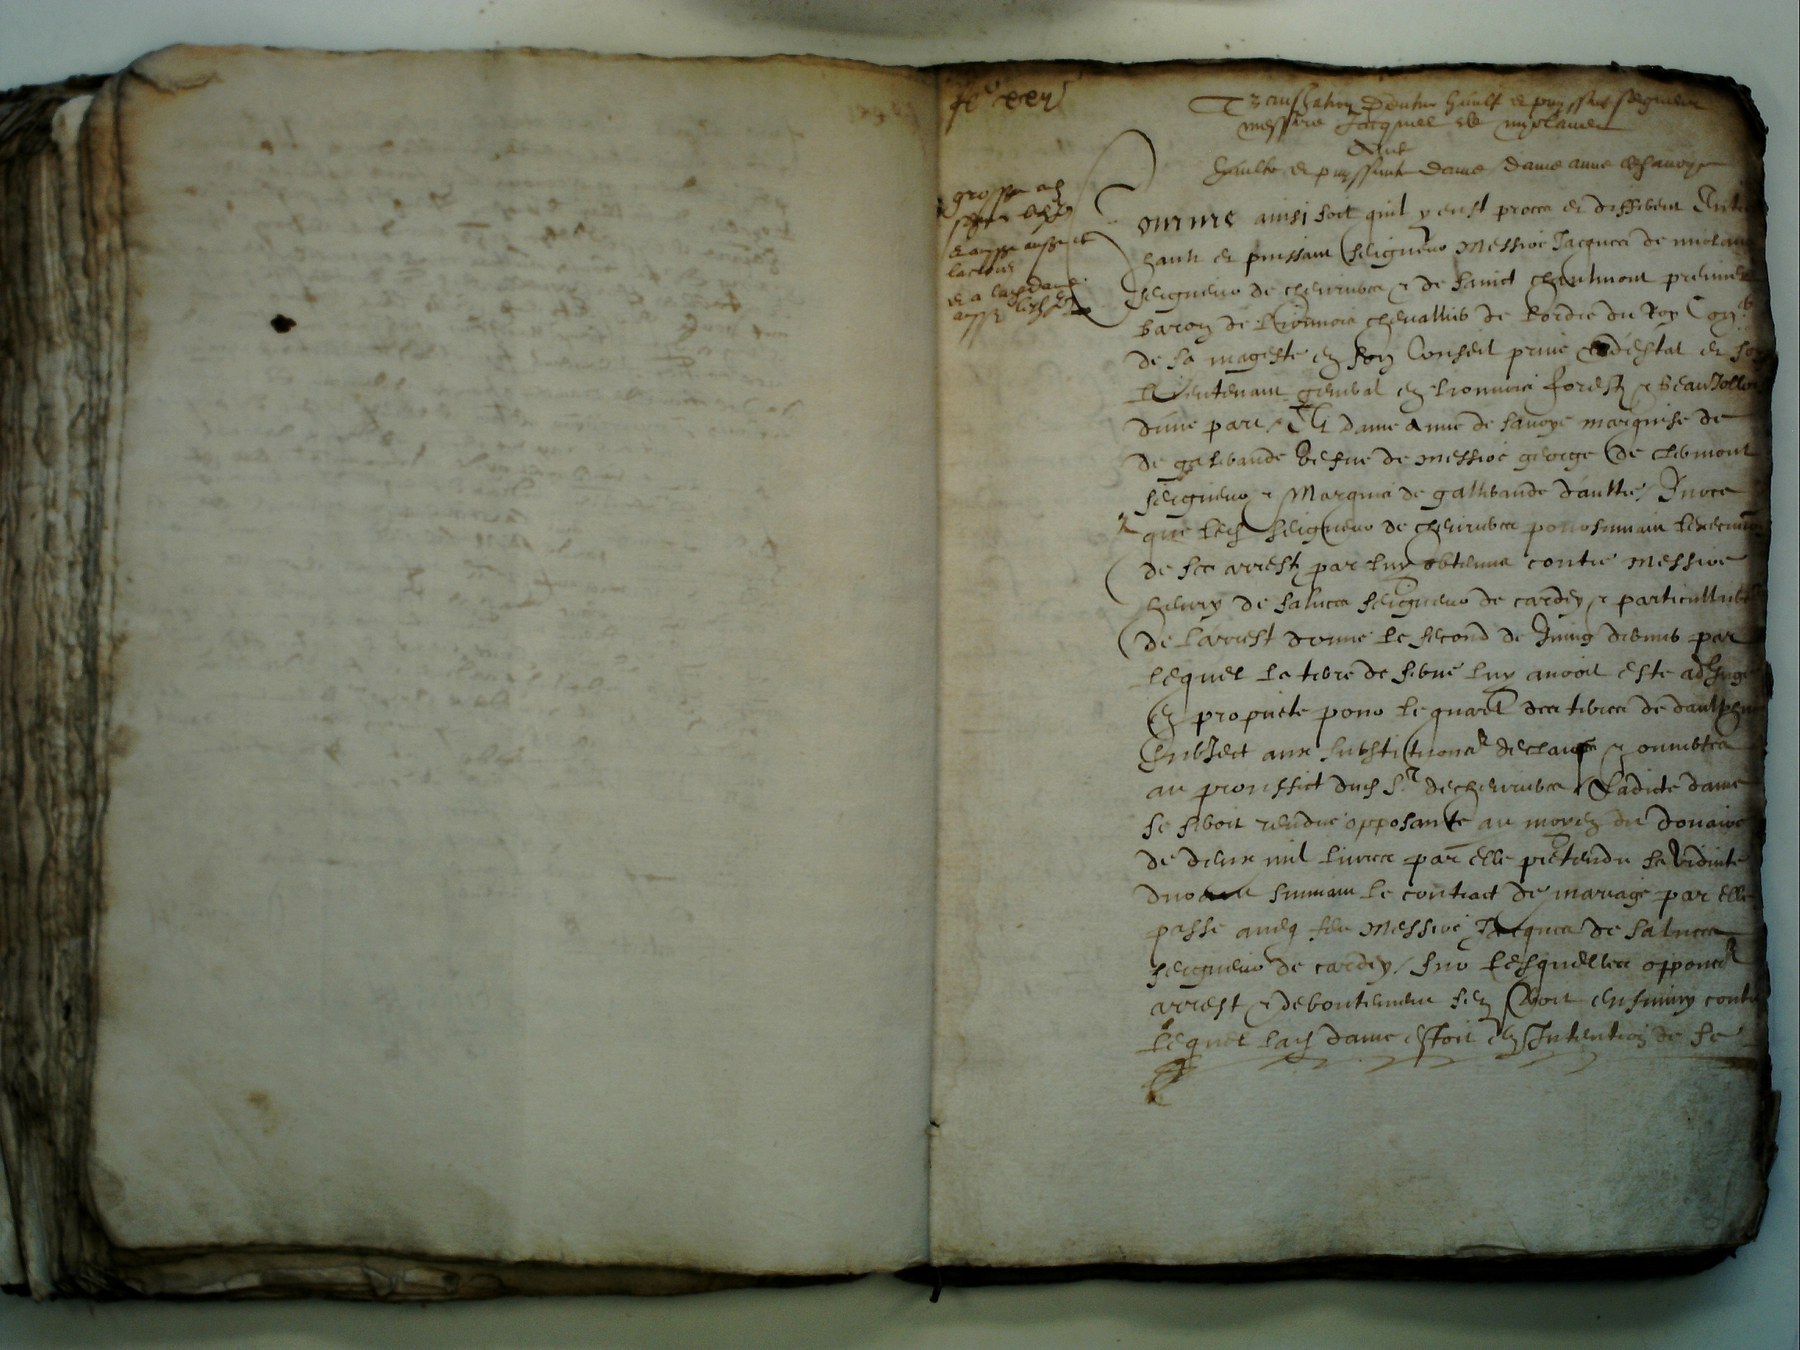 Transsaction dentre hault et puyssant seigneur
messire Jacques de myolans
Avec
haulte et puyssante dame dame anne de savoye
grosse aud
Comme ainsi soit quil y eust proces et different Entre
hault et puissant seigneur Messire Jacques de miolans
seigneur de chevrieres & de sainct chaulmont premier
baron de Lionnois chevallier de lordre du Roy Con.er
de sa mageste en son Conseil prive & destat et son
Lieutenant general en Lionnois forestz & beauJollois
dune part / Et dame Anne de savoye marquise de
de gallerande vefve de messire george de clermont
seigneur & Marquis de gallerande daultre / Sur ce
que led seigneur de chevrieres poursuivant lexecution
de ses arrestz par luy obtenus contre messire
henry de saluces seigneur de cardey & particullierement
de larrest donne le second de Juing dernier par
lequel la terre de servе luy avoit este adjugee
En propriete pour le quart des terres de daulphine
subJect aux substitutions declairees & ouvertes
au prouffict dud S.r de chevrieres / Ladicte dame
se seroit rendue opposante au moyen du douaire
de deux mil livres par elle pretendu sa vie durant
suivant le contract de mariage par elle
passe avecq feu Messire Jacques de saluces
seigneur de cardey / sur lesquelles opposicions
arrest & deboutement sen seroit ensuivy contre
lequel lad dame estoit en Intention de se